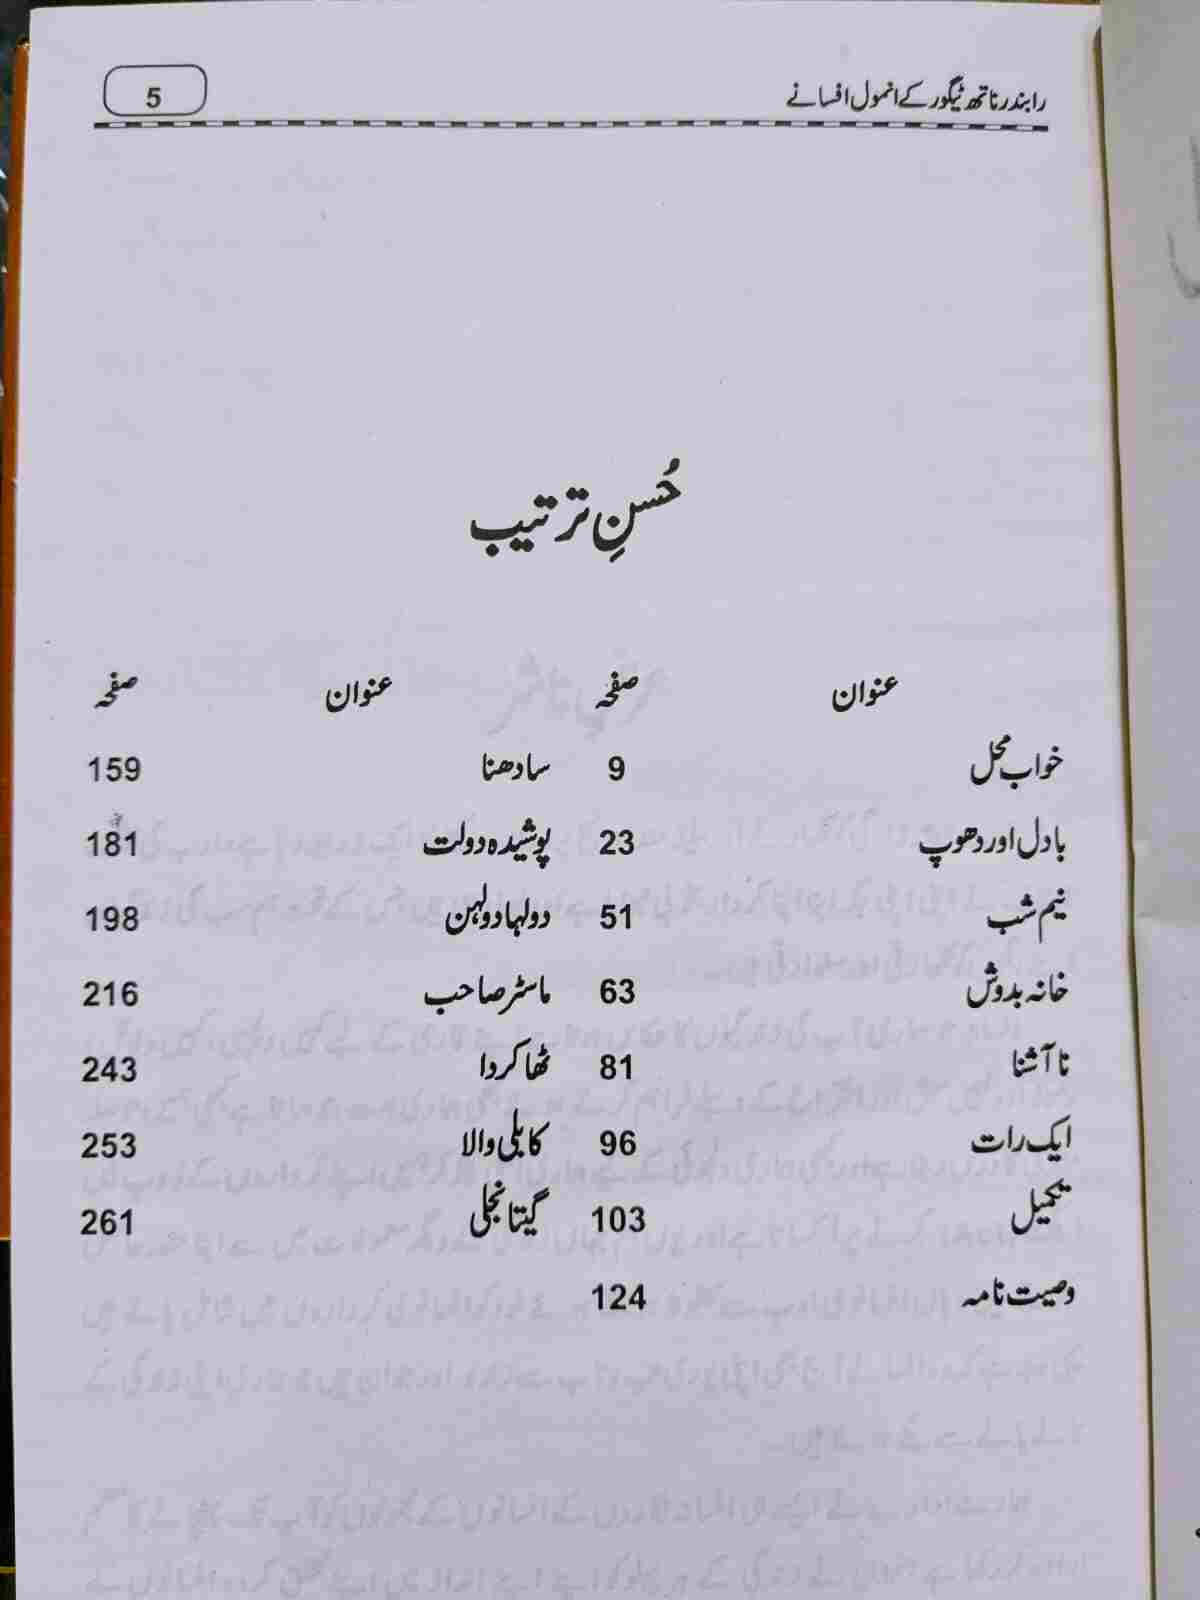 رابندر ناتھ ٹیگور کے انمول افسانے 5
حُسنِ ترتیب
عنوان صفحہ عنوان صفحہ
خواب محل 9 سادھنا 159
بادل اور دھوپ 23 پوشیدہ دولت 181
نیم شب 51 دولہا دولہن 198
خانہ بدوش 63 ماسٹر صاحب 216
نا آشنا 81 ٹھاکر دا 243
ایک رات 96 کابلی والا 253
تکمیل 103 گیتا نجلی 261
وصیت نامہ 124